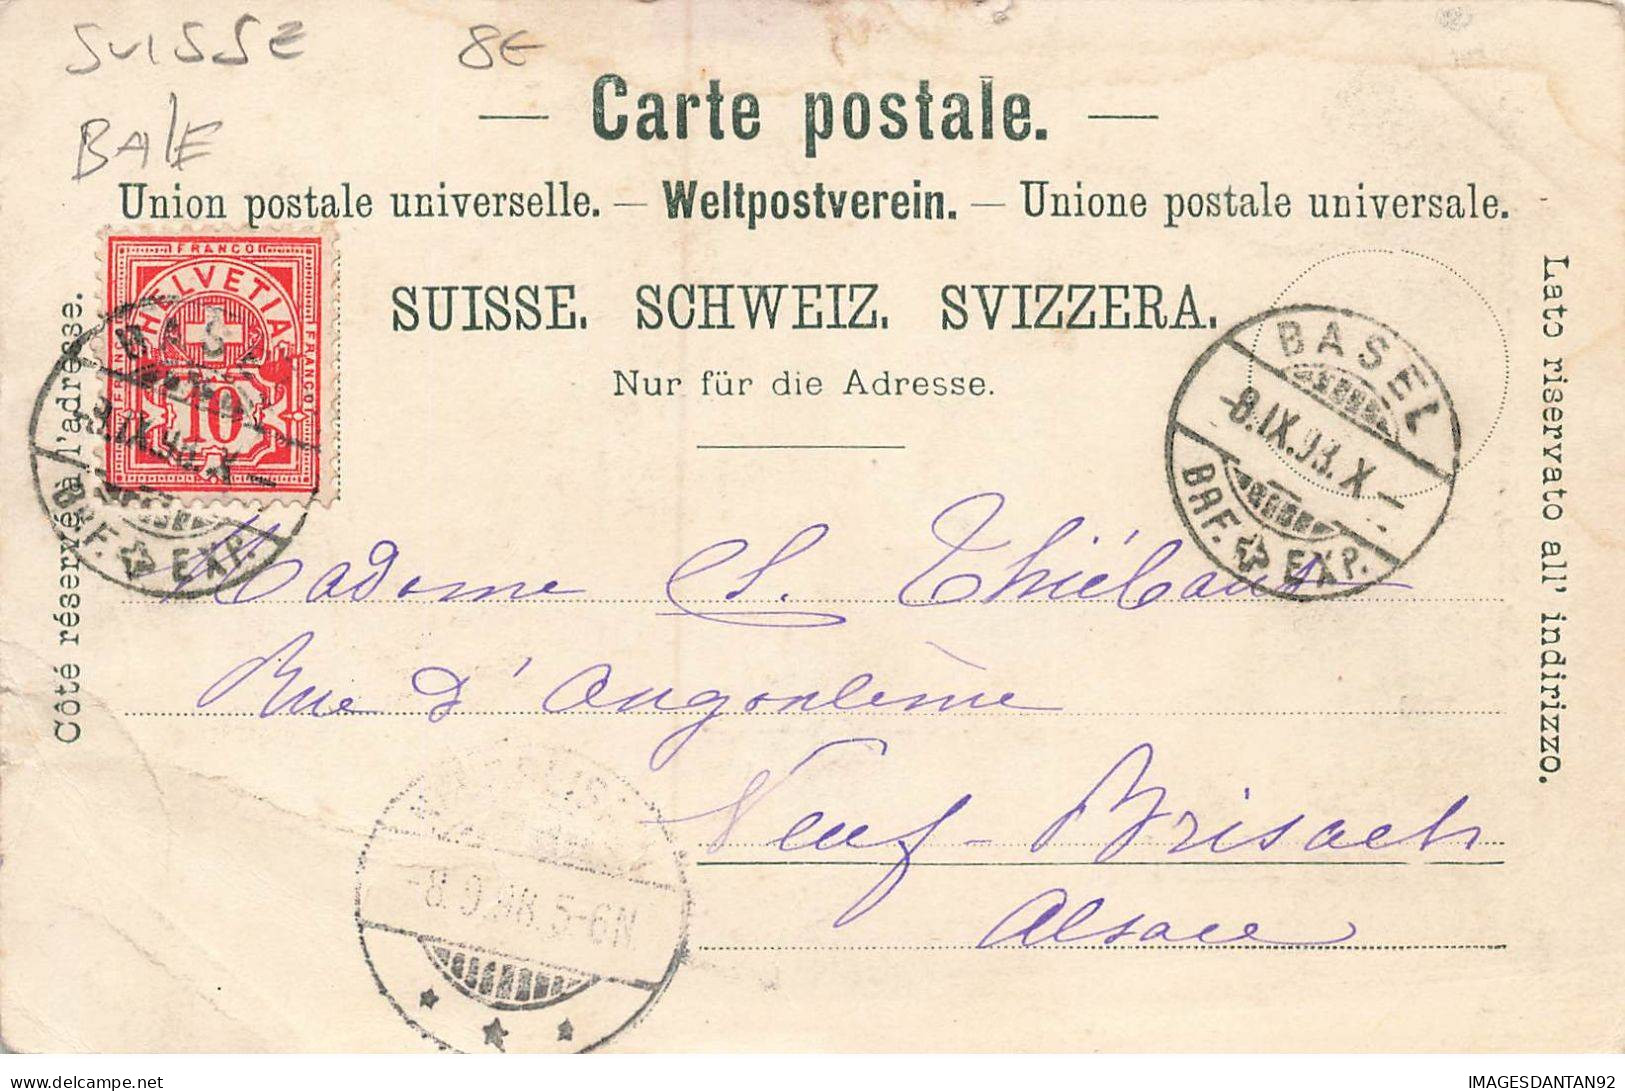 SUISSE 8E
BALE
— Carte postale. —
Union postale universelle. — Weltpostverein. — Unione postale universale.
SUISSE. SCHWEIZ. SVIZZERA.
Nur für die Adresse.
Côté réservé à l'adresse.
Lato riservato all' indirizzo.
FRANCO
FRANCO
FRANCO
HELVETIA
10
BASEL
BRF. EXP.
BASEL
-8.IX.93.X-
BRF. EXP.
Madame Ch. Thiébaut
Rue d'Angoulème
Neuf-Brisach
Alsace
-8.9.98.5-6N
IMAGESDANTAN92